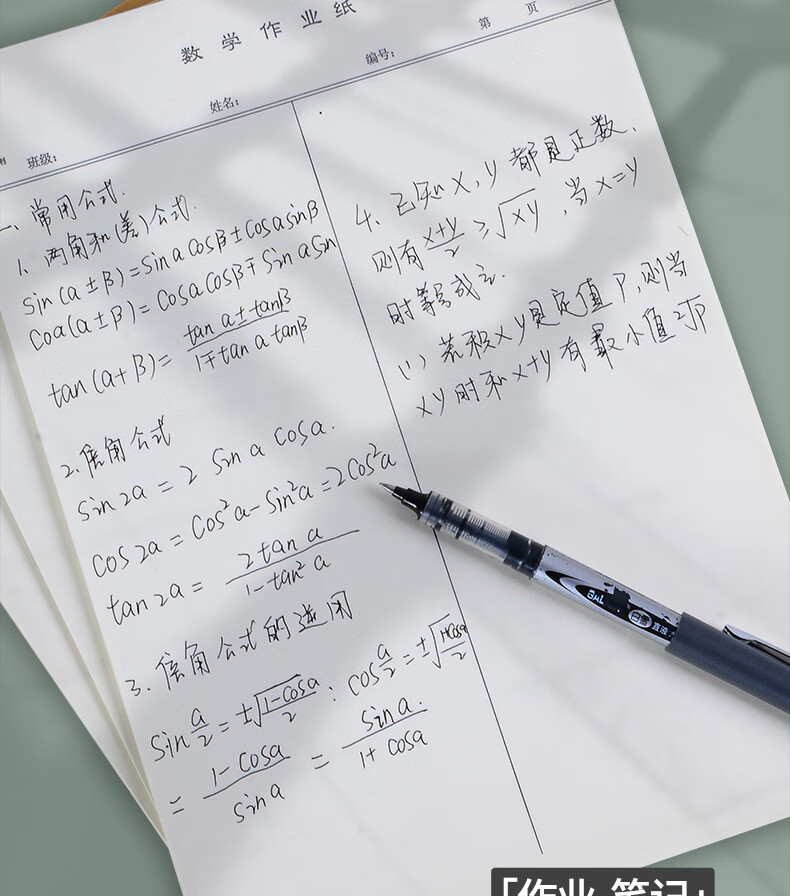 数学作业纸
第 页
编号：
姓名：
班级：
一、常用公式.
1、两角和(差)公式.
sin(a±β)=sin a cosβ±cosasinβ
coa(a±β)=cosacosβ∓sin asin
tan(a+β)= tan a±tanβ / 1∓tan a tanβ
2.倍角公式
sin2a=2 sin a cosa.
cos2a=cos²a-sin²a=2cos²a
tan2a= 2tan a / 1-tan²a
3.倍角公式的逆用
sin a/2=±√1-cosa/2 : cos a/2=±√1+cosa/2
= 1-cosa / sin a = sin a. / 1+cosa
4、已知x,y都是正数、
则有 x+y/2 ≥√xy ,当x=y
时等号成立.
(1)若积xy是定值P,则当
xy时和x+y有最小值2√P
直液
「作业 笔记」